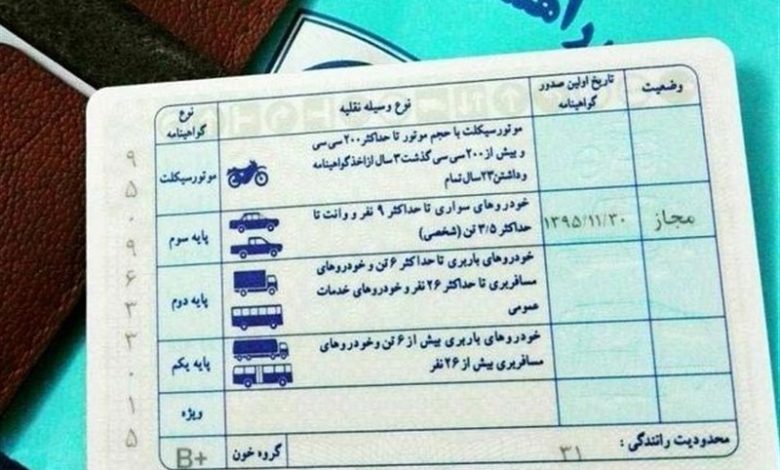 نوع گواهینامه
نوع وسیله نقلیه
تاریخ اولین صدور گواهینامه
وضعیت
موتورسیکلت
موتورسیکلت با حجم موتور تا حداکثر ۲۰۰ سی سی
و بیش از ۲۰۰ سی سی گذشت ۳ سال از اخذ گواهینامه
و داشتن ۲۳ سال تمام
پایه سوم
خودروهای سواری تا حداکثر ۹ نفر و وانت تا
حداکثر ۳/۵ تن (شخصی)
۱۳۹۵/۱۱/۳۰
مجاز
پایه دوم
خودروهای باربری تا حداکثر ۶ تن و خودروهای
مسافربری تا حداکثر ۲۶ نفر و خودروهای خدمات
عمومی
پایه یکم
خودروهای باربری بیش از ۶ تن و خودروهای
مسافربری بیش از ۲۶ نفر
ویژه
B+
گروه خون
محدودیت رانندگی : ۳۱
۹۵۰۹۶۳۳۰۱۵